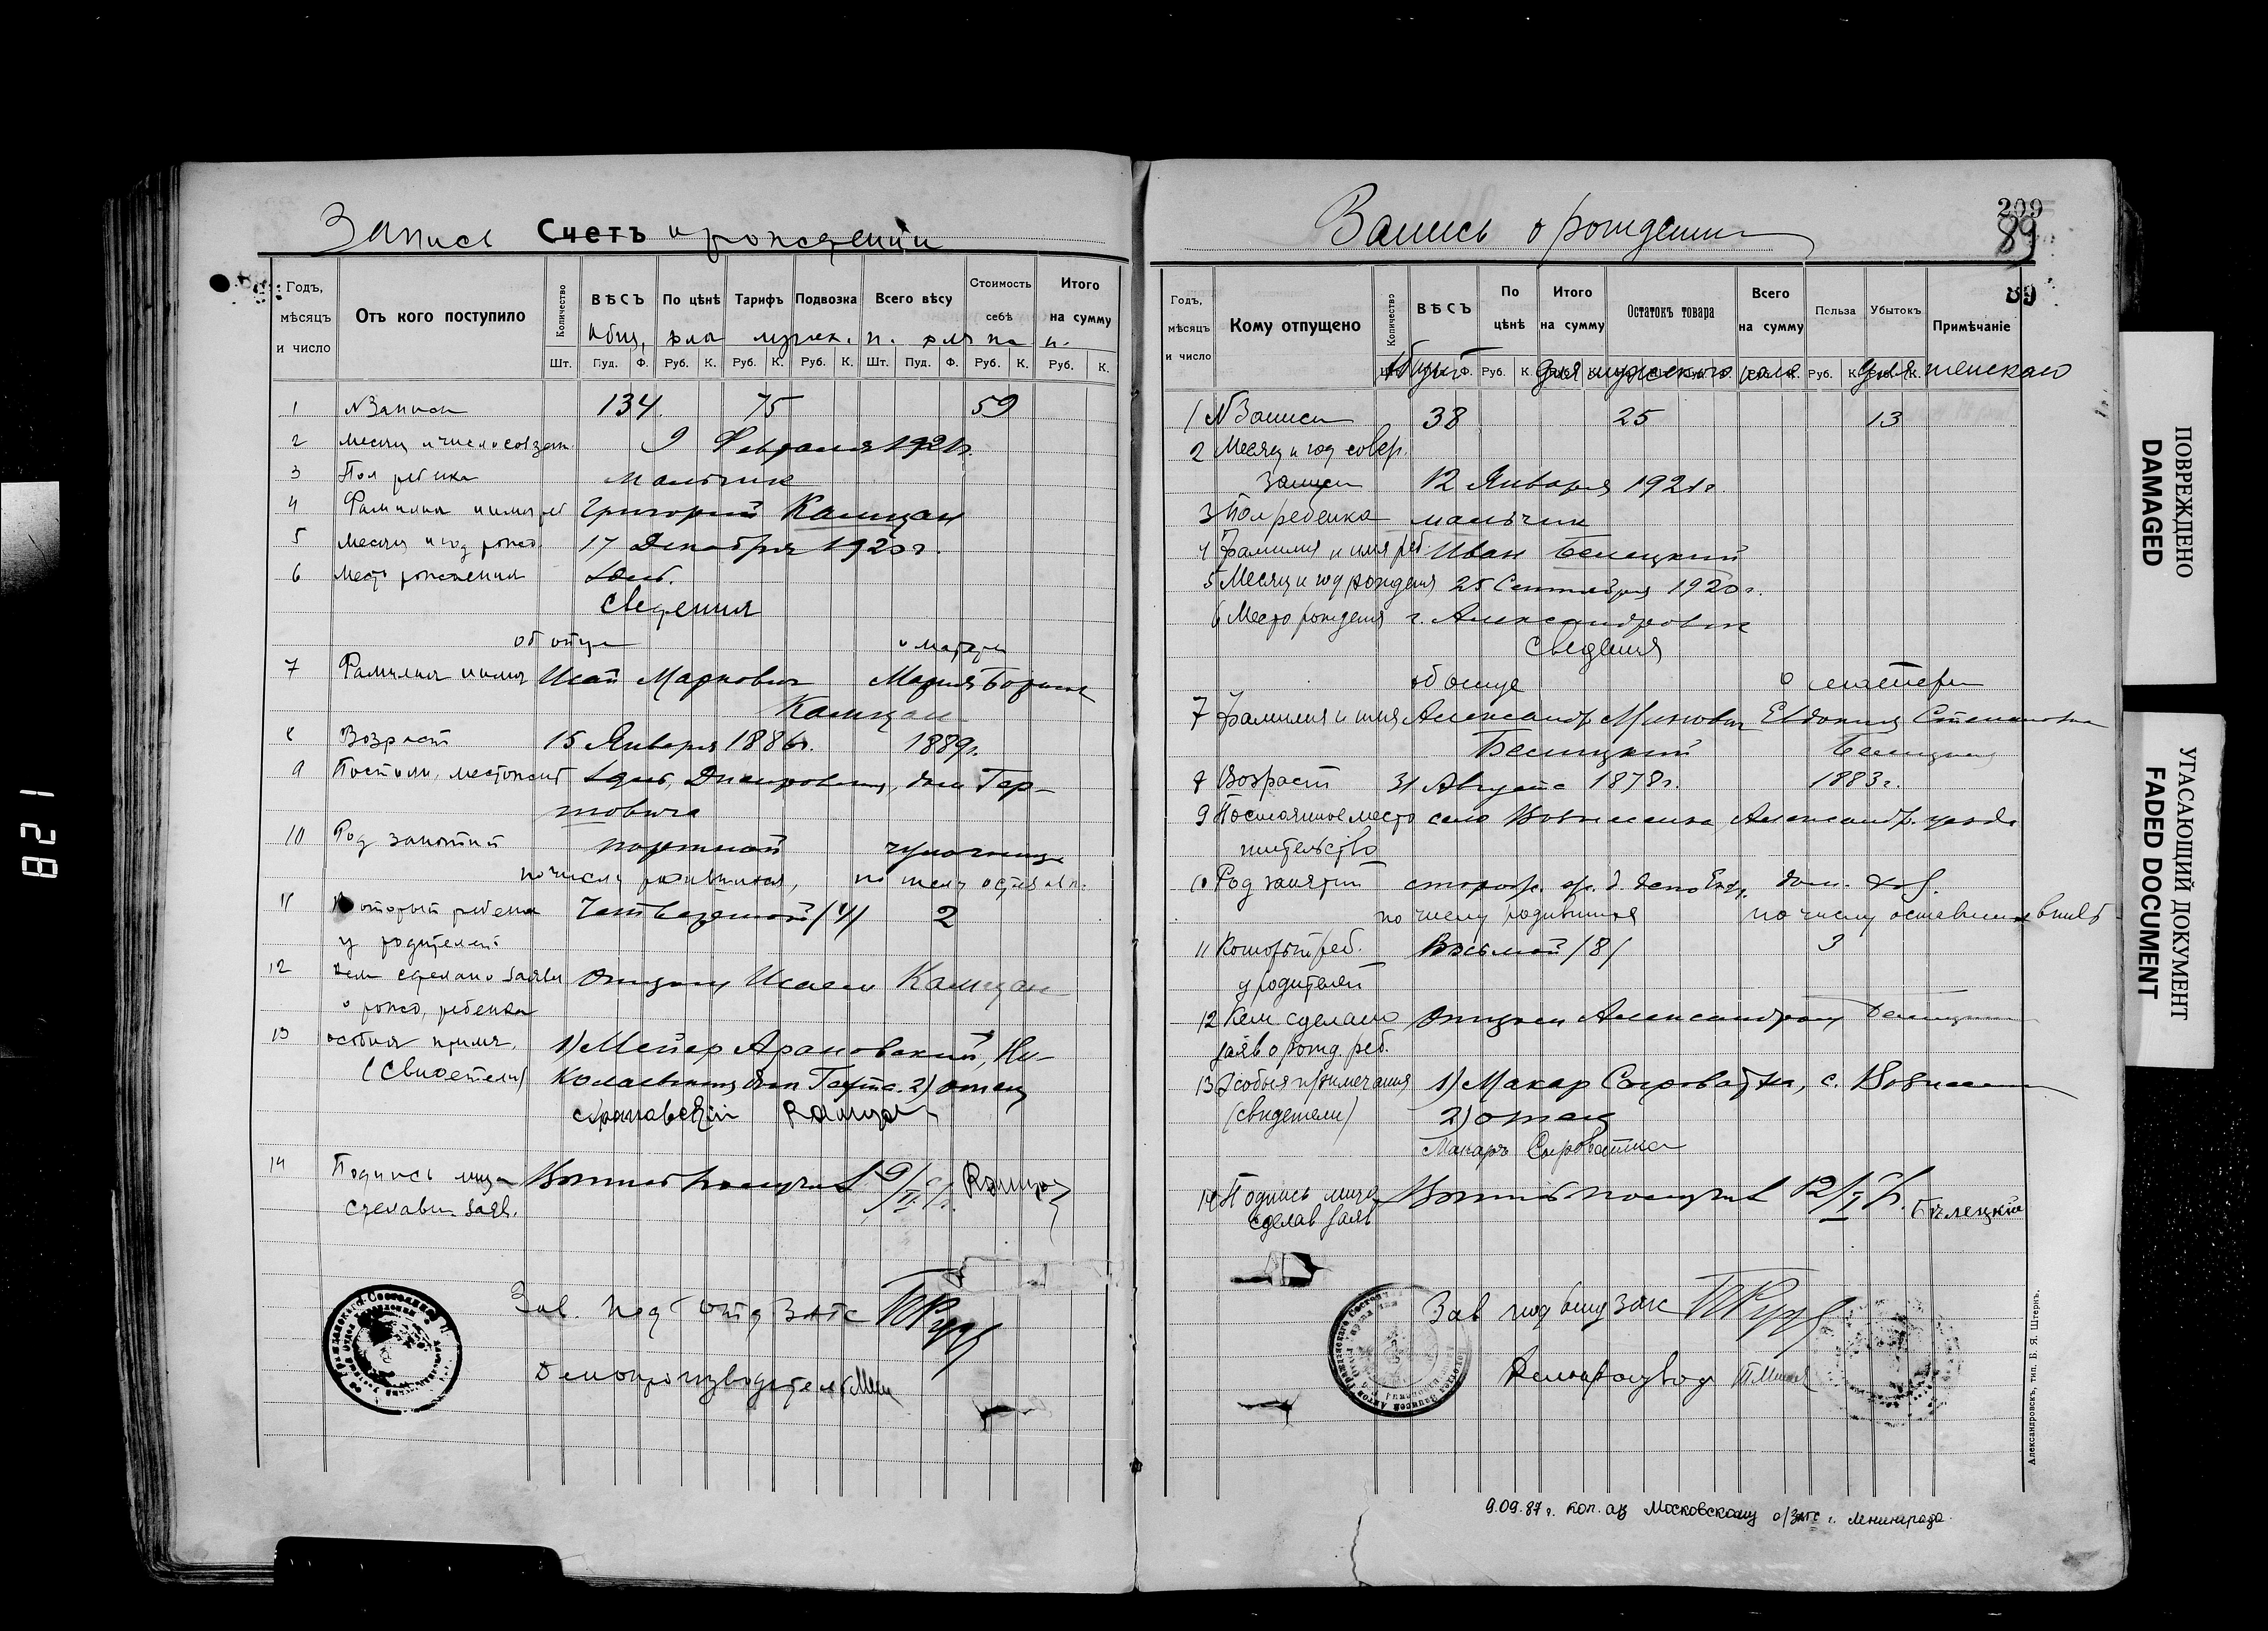 Запись Счетъ о рождении
Годъ, мѣсяцъ и число
Отъ кого поступило
Количество
ВѢСЪ
По цѣнѣ
Тарифъ
Подвозка
Всего вѣсу
Стоимость себѣ
Итого на сумму
Общ. для мужск. п. для
Шт. Пуд. Ф. Руб. К. Руб. К. Руб. К. Шт. Пуд. Ф. Руб. К. Руб. К.
1 № Записи 134. 75 59
2 Месяц и число 9 Февраля 1921г.
3 Пол ребенка мальчик
4 Фамилия и имя реб Григорий Камцан
5 Месяц и год рожд. 17 Декабря 1920г.
6 Место рождения
Сведения
об отце о матери
7 Фамилия и имя Исай Маркович Мария
Камцан
8 Возраст 15 Января 1886г. 1889г.
9 дом Гер-
товича
10 Род занятий портной
по числу родившихся, по числу
11 Который ребенок Четвертый /4/ 2
у родителей
12 Кем сделано заявл Отцом Исаем Камцан
о рожд. ребенка
13 особыя примеч. 1) Мейер Арановский, Ни-
(Свидетели) 2) отец
14 Подпись лица Копию получил 9/II
сделавш. заяв.
Зав. Под Отд ЗАГС
Делопроизводитель
Запись о рождении
209
89
89
Годъ, мѣсяцъ и число
Кому отпущено
Количество
ВѢСЪ
По цѣнѣ
Итого на сумму
Остатокъ товара
Всего на сумму
Польза
Убытокъ
Примѣчаніе
Общий для мужского пола для женскаго
1 № Записи 38 25 13
2 Месяц и год совер.
Записи 12 Января 1921г.
3 Пол ребенка мальчик
4 Фамилия и имя реб Иван Белецкий
5 Месяц и год рождения 25 Сентября 1920г.
6 Место рождения г. Александровск
Сведения
об отце о матери
7 Фамилия и имя Александр Евдокия Степановна
Белецкий Белецкая
8 Возраст 31 Августа 1878г. 1883г.
9 Постоянное место село Александр. уезда
жительство
10 Род занятий
по числу родившихся по числу оставшихся в жив
11 Который реб. Восьмой /8/ 3
у родителей
12 Кем сделано Отцом Александром Белецким
заяв о рожд. реб.
13 Особыя примечания 1) Макар Сыроватка, с.
(свидетели) 2) отец
Макаръ Сыроватка
14 Подпись лица Копию получил 12/I
сделав заяв Бѣлецкий
Зав под отд загс
Делопроизвод
9.09.87г. Московскому о/ЗАГС г. Ленинграда.
Александровскъ, тип. Б. Я. Штернъ.
ПОВРЕЖДЕНО
DAMAGED
УГАСАЮЩИЙ ДОКУМЕНТ
FADED DOCUMENT
1281